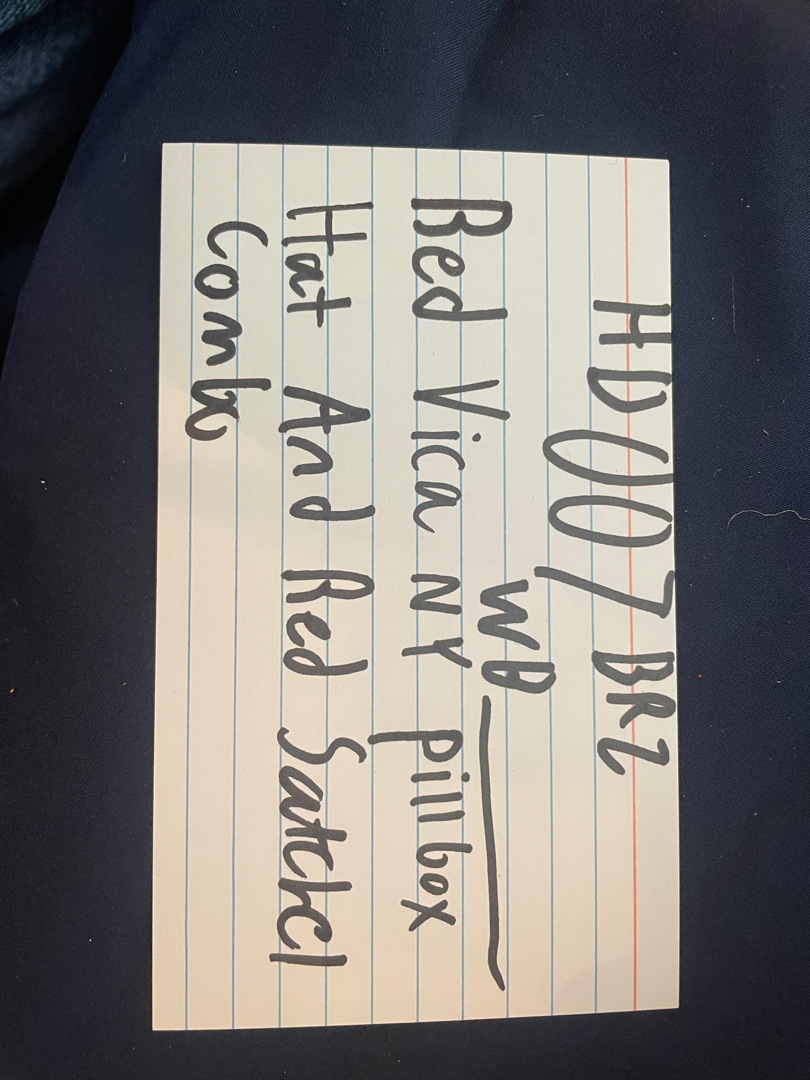 HD007BRZ
WB
Bed Vica NY pillbox
Hat And Red Satchel
Combo